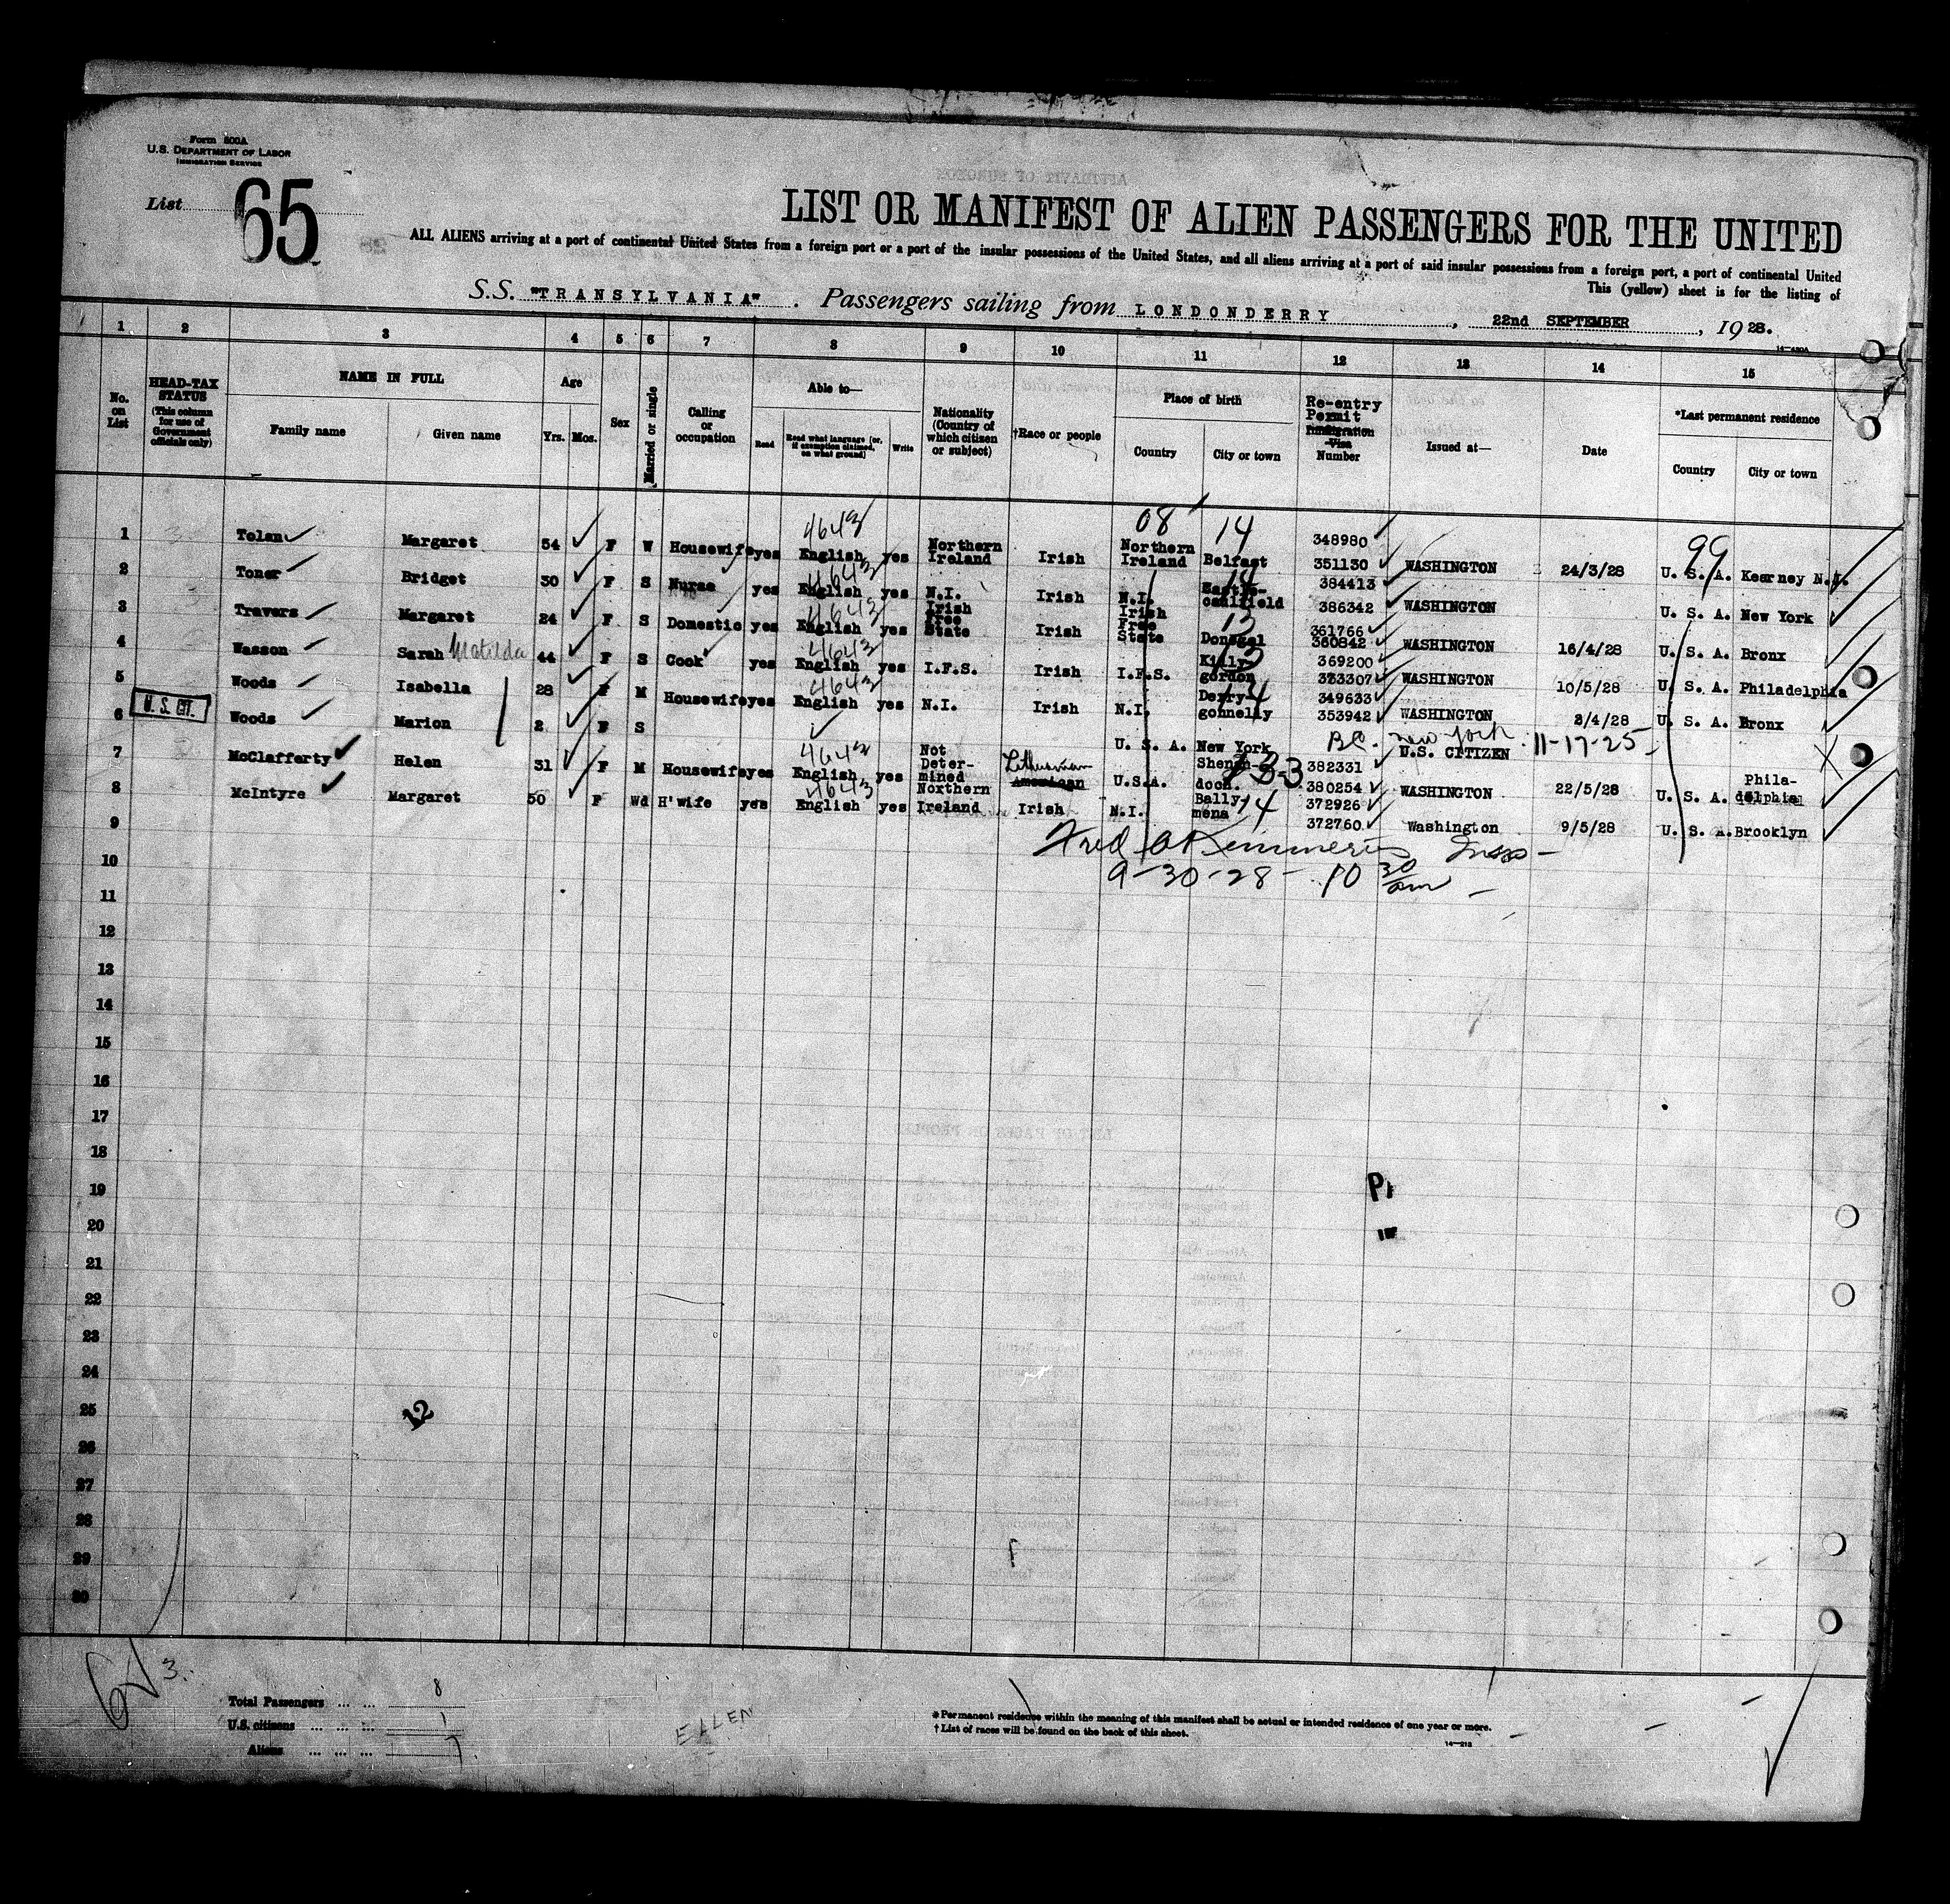 Form 500A
U.S. DEPARTMENT OF LABOR
IMMIGRATION SERVICE
List 65
LIST OR MANIFEST OF ALIEN PASSENGERS FOR THE UNITED
ALL ALIENS arriving at a port of continental United States from a foreign port or a port of the insular possessions of the United States, and all aliens arriving at a port of said insular possessions from a foreign port, a port of continental United
This (yellow) sheet is for the listing of
S.S. "TRANSYLVANIA". Passengers sailing from LONDONDERRY, 22nd SEPTEMBER, 1928.
1 2 3 4 5 6 7 8 9 10 11 12 13 14 15
No. on List
HEAD-TAX STATUS (This column for use of Government officials only)
NAME IN FULL
Family name Given name
Age
Yrs. Mos.
Sex
Married or single
Calling or occupation
Able to—
Read Read what language (or, if exemption claimed, on what ground) Write
Nationality (Country of which citizen or subject)
†Race or people
Place of birth
Country City or town
Re-entry Permit Immigration Visa Number
Issued at—
Date
*Last permanent residence
Country City or town
1 Tolan Margaret 54 F W Housewife yes 4643 English yes Northern Ireland Irish 08 Northern Ireland 14 Belfast 348980 351130 WASHINGTON 24/3/28 99 U. S. A. Kearney N.J.
2 Toner Bridget 30 F S Nurse yes 4643 English yes N.I. Irish N.I. 14 caulfield 384413 386342 WASHINGTON U. S. A. New York
3 Travers Margaret 24 F S Domestic yes 4643 English yes Irish Free State Irish Irish Free State 13 Donegal 361766 360842 WASHINGTON 16/4/28 U. S. A. Bronx
4 Wasson Sarah Matilda 44 F S Cook yes 4643 English yes I.F.S. Irish I.F.S. 13 Killy-gordon 369200 373307 WASHINGTON 10/5/28 U. S. A. Philadelphia
5 Woods Isabella 28 F M Housewife yes 4643 English yes N.I. Irish N.I. 14 Derry-gonnelly 349633 353942 WASHINGTON 3/4/28 U. S. A. Bronx
6 U. S. CIT. Woods Marion 2 F S U. S. A. New York B.C. New York 11-17-25 U.S. CITIZEN
7 McClafferty Helen 31 F M Housewife yes 4643 English yes Not Deter-mined Lithuanian American U.S.A. Shenan-doch. 382331 380254 WASHINGTON 22/5/28 U. S. A. Phila-delphia
8 McIntyre Margaret 50 F Wd H'wife yes 4643 English yes Northern Ireland Irish N.I. Bally mena 14 372926 372760 Washington 9/5/28 U. S. A. Brooklyn
9
10 9-30-28- 10 30 am
11
12
13
14
15
16
17
18
19
20
21
22
23
24
25 12
26
27
28
29
30
3.
Total Passengers ... ... 8
U.S. citizens ... ... ... 1
Aliens ... ... ... 7.
ELLEN
*Permanent residence within the meaning of this manifest shall be actual or intended residence of one year or more.
†List of races will be found on the back of this sheet.
14—213